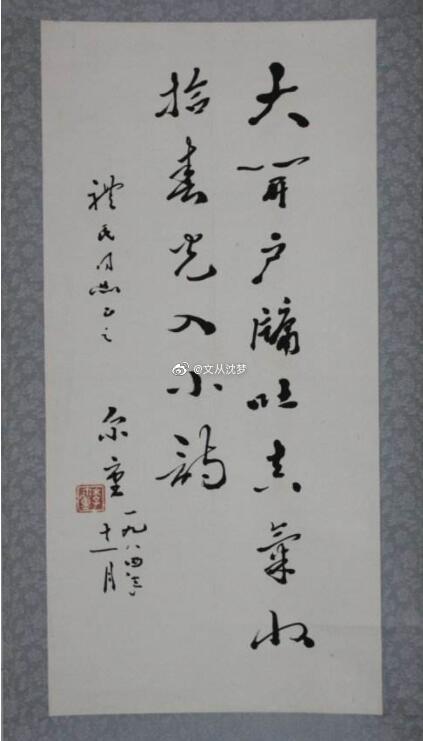 大開户牖吐真氣收
拾春光入小詩
禮民同志正之
尔重
一九八四年
十一月
@文从沈梦